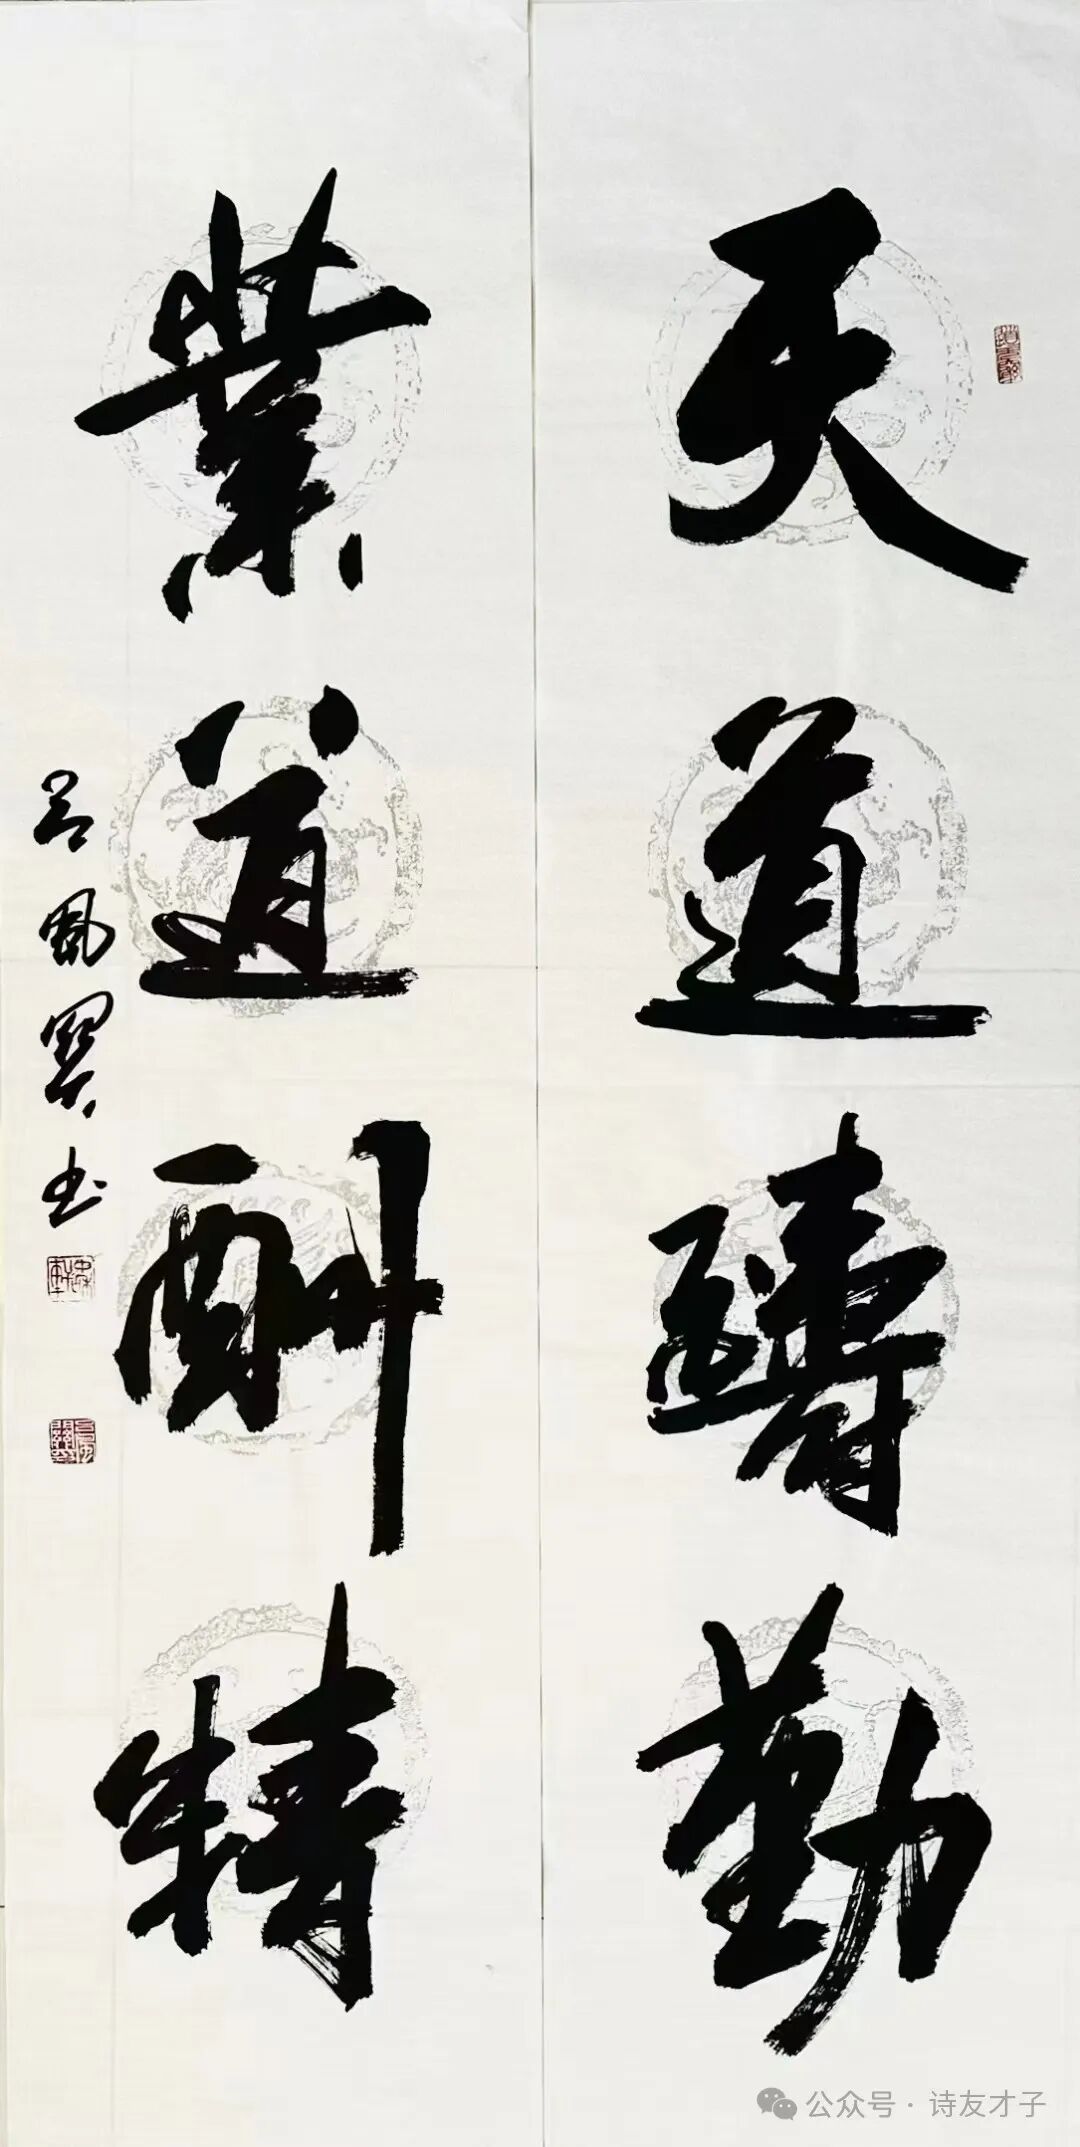 天道醻勤
業道酬精
吕鳳书
公众号·诗友才子